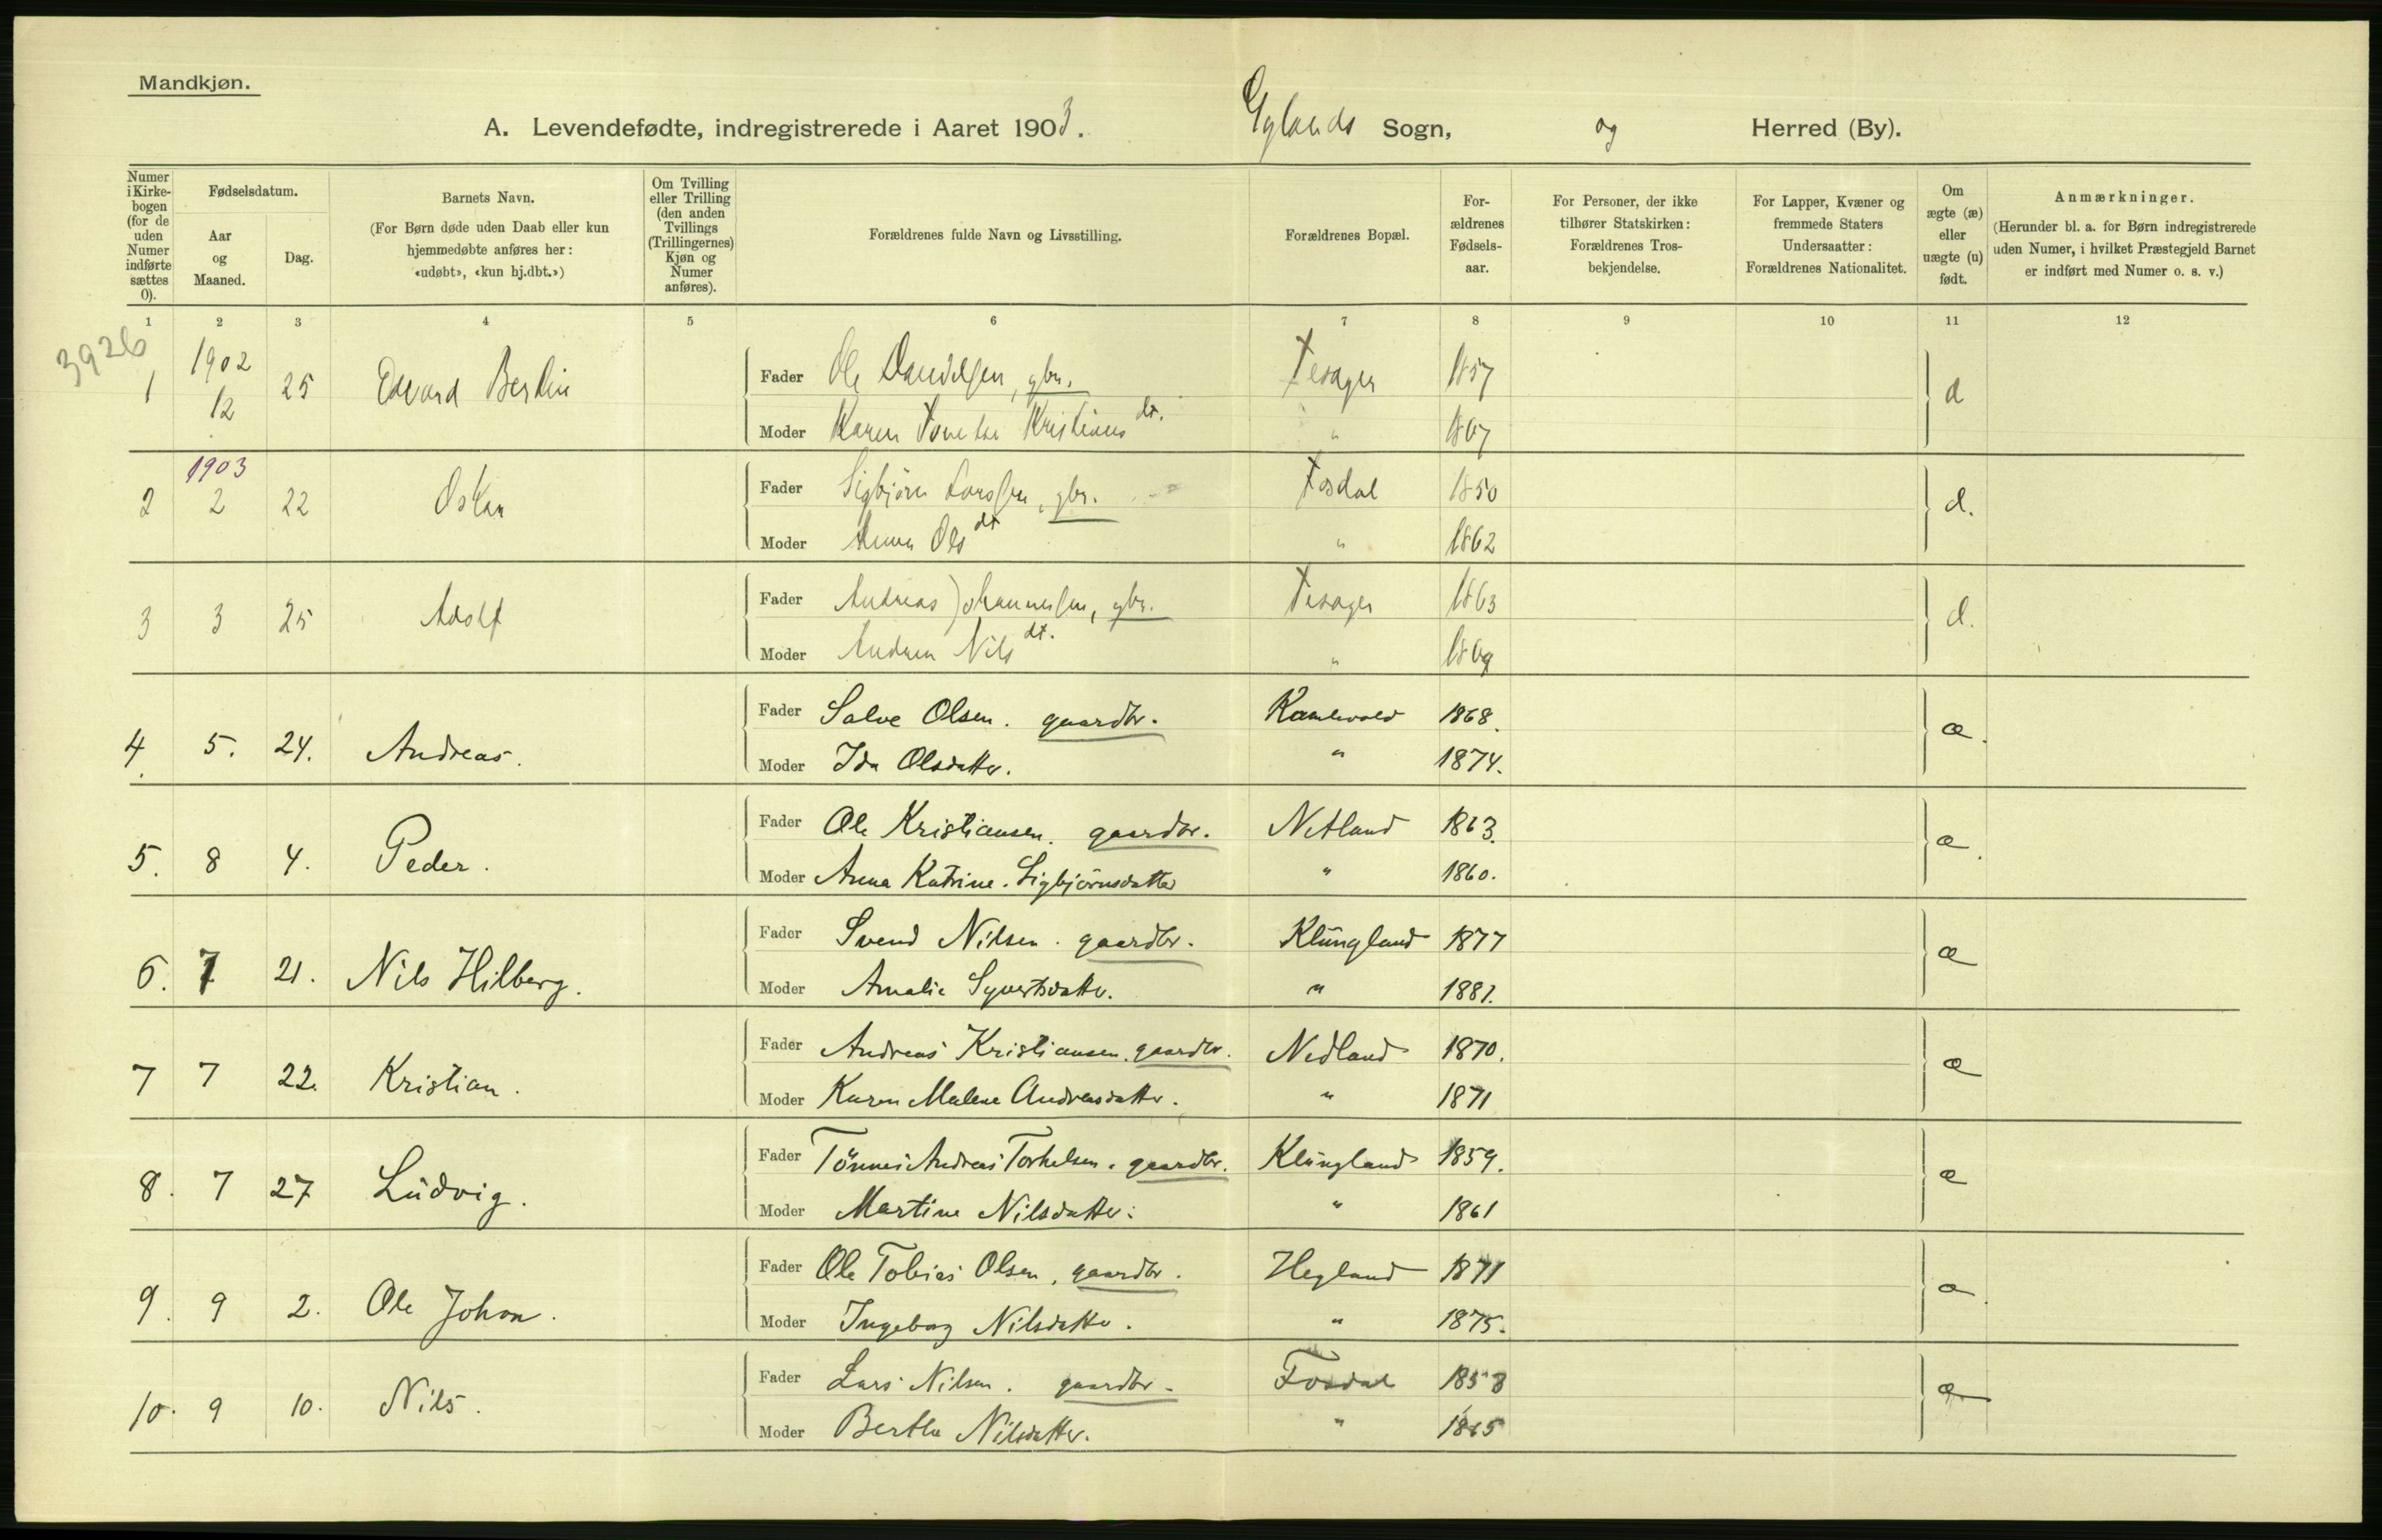 Mandkjøn.
A. Levendefødte, indregistrerede i Aaret 1903. Gylands Sogn, og Herred (By).
Numer i Kirkebogen (for de uden Numer indførte sættes 0).
Fødselsdatum.
Aar og Maaned.
Dag.
Barnets Navn.
(For Børn døde uden Daab eller kun hjemmedøbte anføres her: «udøbt», «kun hj.dbt.»)
Om Tvilling eller Trilling (den anden Tvillings (Trillingernes) Kjøn og Numer anføres).
Forældrenes fulde Navn og Livsstilling.
Forældrenes Bopæl.
Forældrenes Fødselsaar.
For Personer, der ikke tilhører Statskirken: Forældrenes Trosbekjendelse.
For Lapper, Kvæner og fremmede Staters Undersaatter: Forældrenes Nationalitet.
Om ægte (æ) eller uægte (u) født.
Anmærkninger.
(Herunder bl. a. for Børn indregistrerede uden Numer, i hvilket Præstegjeld Barnet er indført med Numer o. s. v.)
1 2 3 4 5 6 7 8 9 10 11 12
3926
1 1902 12 25 Edvard Berlin Fader Ole Danielsen, gbr. 1857
Moder Karen Kristians dt. " 1867
1903
2 2 22 Oskar Fader Sigbjörn Larssen, gbr. Fosdal 1850
Moder Anna Ols dt " 1862
3 3 25 Adolf Fader Andreas Johannessen, gbr. 1863
Moder Andrea Nils dt. " 1869
4. 5. 24. Andreas. Fader Salve Olsen. gaardbr. 1868. æ.
Moder Ida Olsdatter. " 1874.
5. 8 4. Peder. Fader Ole Kristiansen. gaardbr. Netland 1863. æ.
Moder Anna Katrine. Sigbjörnsdatter " 1860.
6. 7 21. Nils Hilberg. Fader Svend Nilsen. gaardbr. Klungland 1877 æ
Moder Amalie Syvertsdatter. " 1881.
7 7 22. Kristian. Fader Andreas Kristiansen. gaardbr. Nedland 1870. æ
Moder Karen Malene Andreasdatter. " 1871
8. 7 27 Ludvig. Fader Tönnes Andreas Torkelsen. gaardbr. Klungland 1859. æ
Moder Martine Nilsdatter. " 1861
9. 9 2. Ole Johan. Fader Ole Tobias Olsen, gaardbr. Hegland 1871 æ.
Moder Ingeborg Nilsdatter. " 1875.
10. 9 10. Nils. Fader Lars Nilsen. gaardbr. Fosdal 1858 æ
Moder Bertha Nilsdatter. " 1865